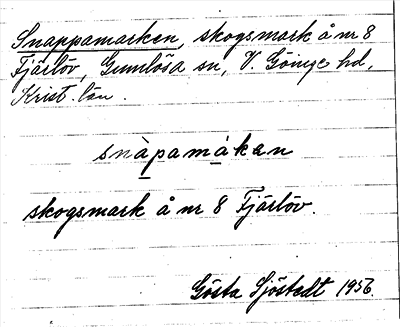 Snappamarken, skogsmark å nr 8
Fjärlöv, Gumlösa sn, V. Göinge hd,
Krist. län.
snàpamàkan
skogsmark å nr 8 Fjärlöv.
Gösta Sjöstedt 1956.